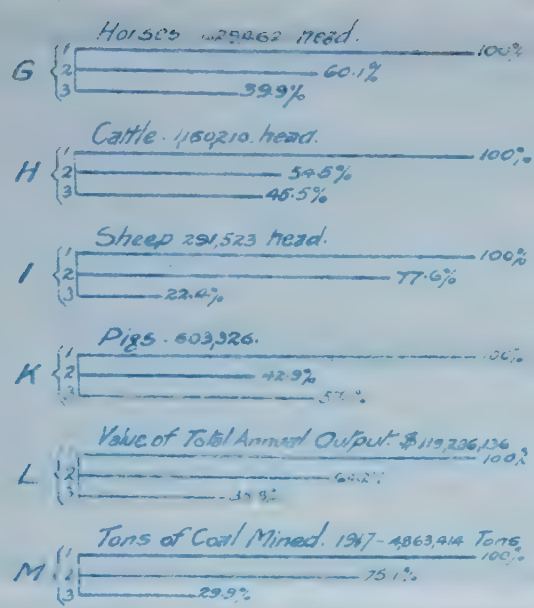 Horses head.
1 100%
G 2 60.1%
3 39.9%
Cattle. 1,160,210. head.
1 100%
H 2 54.5%
3 45.5%
Sheep 291,523 head.
1 100%
I 2 77.6%
3
Pigs. 603,326.
1 100%
K 2 42.9%
3
Value of Total Annual Output. $119,236,136
1 100%
L 2
3
Tons of Coal Mined. 1917 - 4,863,414 Tons
1 100%
M 2
3 29.9%